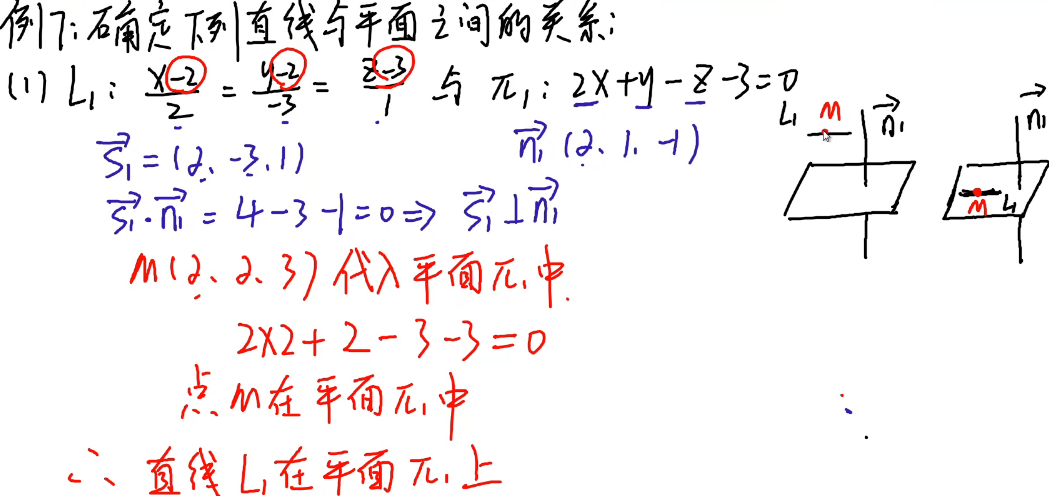 例7:确定下列直线与平面之间的关系:
(1) L₁: (x-2)/2 = (y-2)/-3 = (z-3)/1 与 π₁: 2x+y-z-3=0
S₁=(2、-3、1) n₁(2、1、-1)
S₁·n₁=4-3-1=0⇒ S₁⊥n₁
M(2、2、3)代入平面π₁中.
2×2+2-3-3=0
点M在平面π₁中
∴直线L₁在平面π₁上
L₁ M n₁
n₁
M L₁